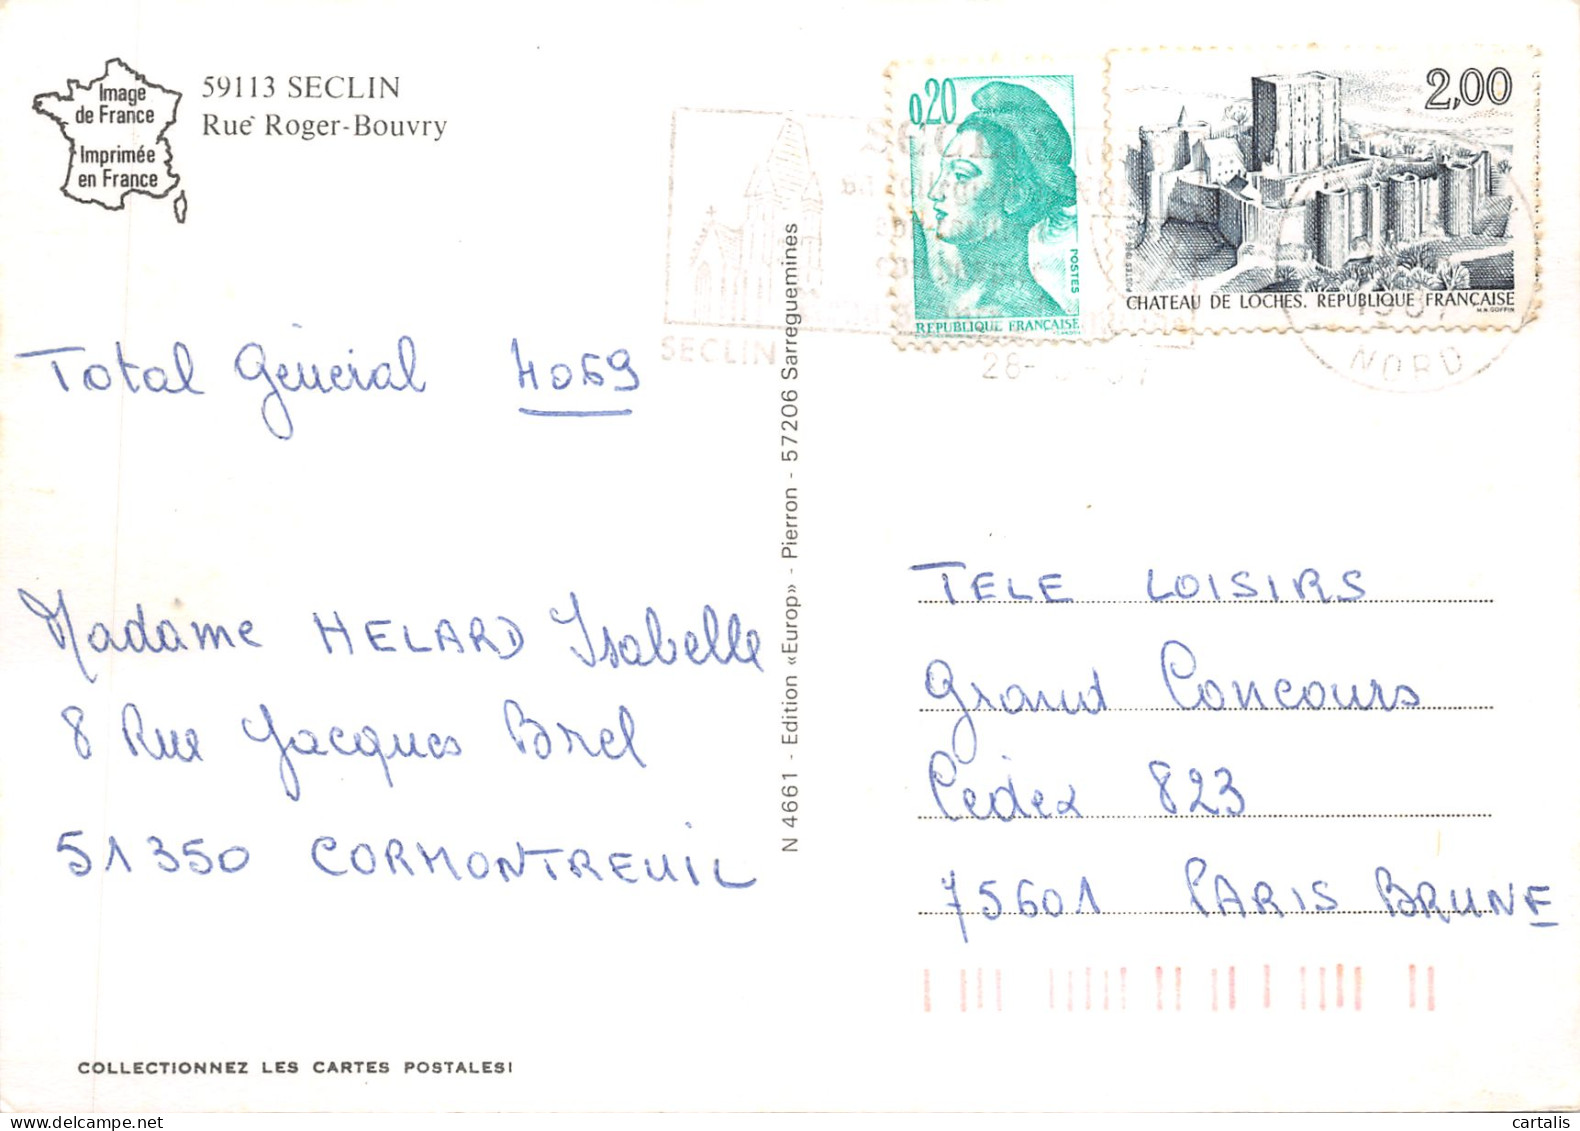 Image
de France
Imprimée
en France
59113 SECLIN
Rue Roger-Bouvry
0,20
POSTES
REPUBLIQUE FRANÇAISE
2,00
CHATEAU DE LOCHES. REPUBLIQUE FRANÇAISE
SECLIN
NORD
Total Général 4069
Madame HELARD Isabelle
8 Rue Jacques Brel
51350 CORMONTREUIL
N 4661 - Edition «Europ» - Pierron - 57206 Sarreguemines
TELE LOISIRS
Grand Concours
Cedex 823
75601 PARIS BRUNE
COLLECTIONNEZ LES CARTES POSTALES!
cartalis